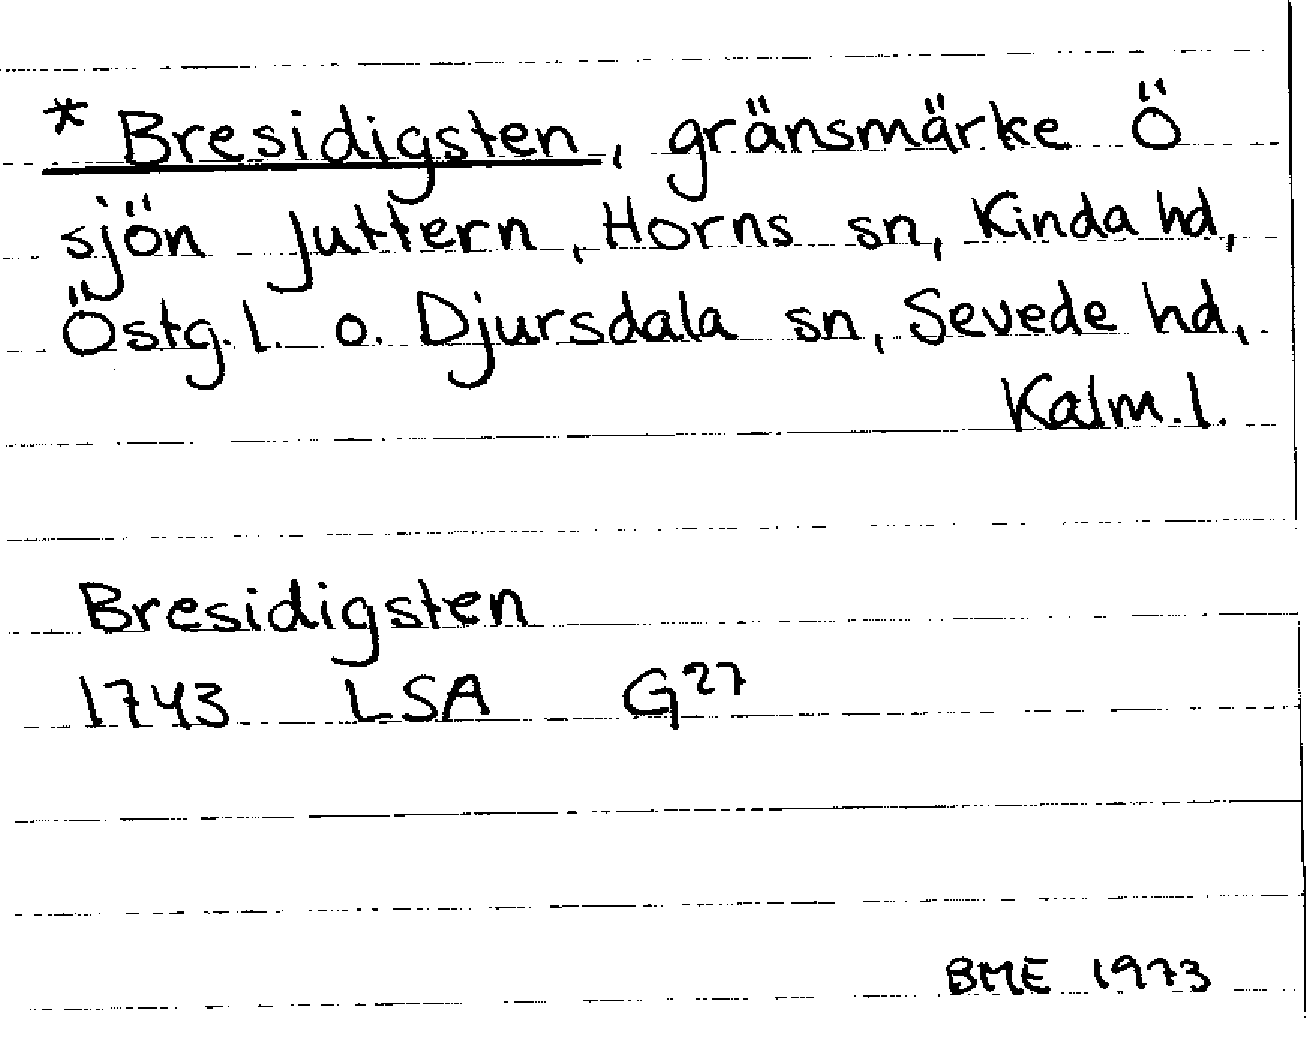 * Bresidigsten, gränsmärke Ö
sjön Juttern, Horns sn, Kinda hd,
Östg.l. o. Djursdala sn, Sevede hd,
Kalm.l.
Bresidigsten
1743 LSA G27
BME 1973